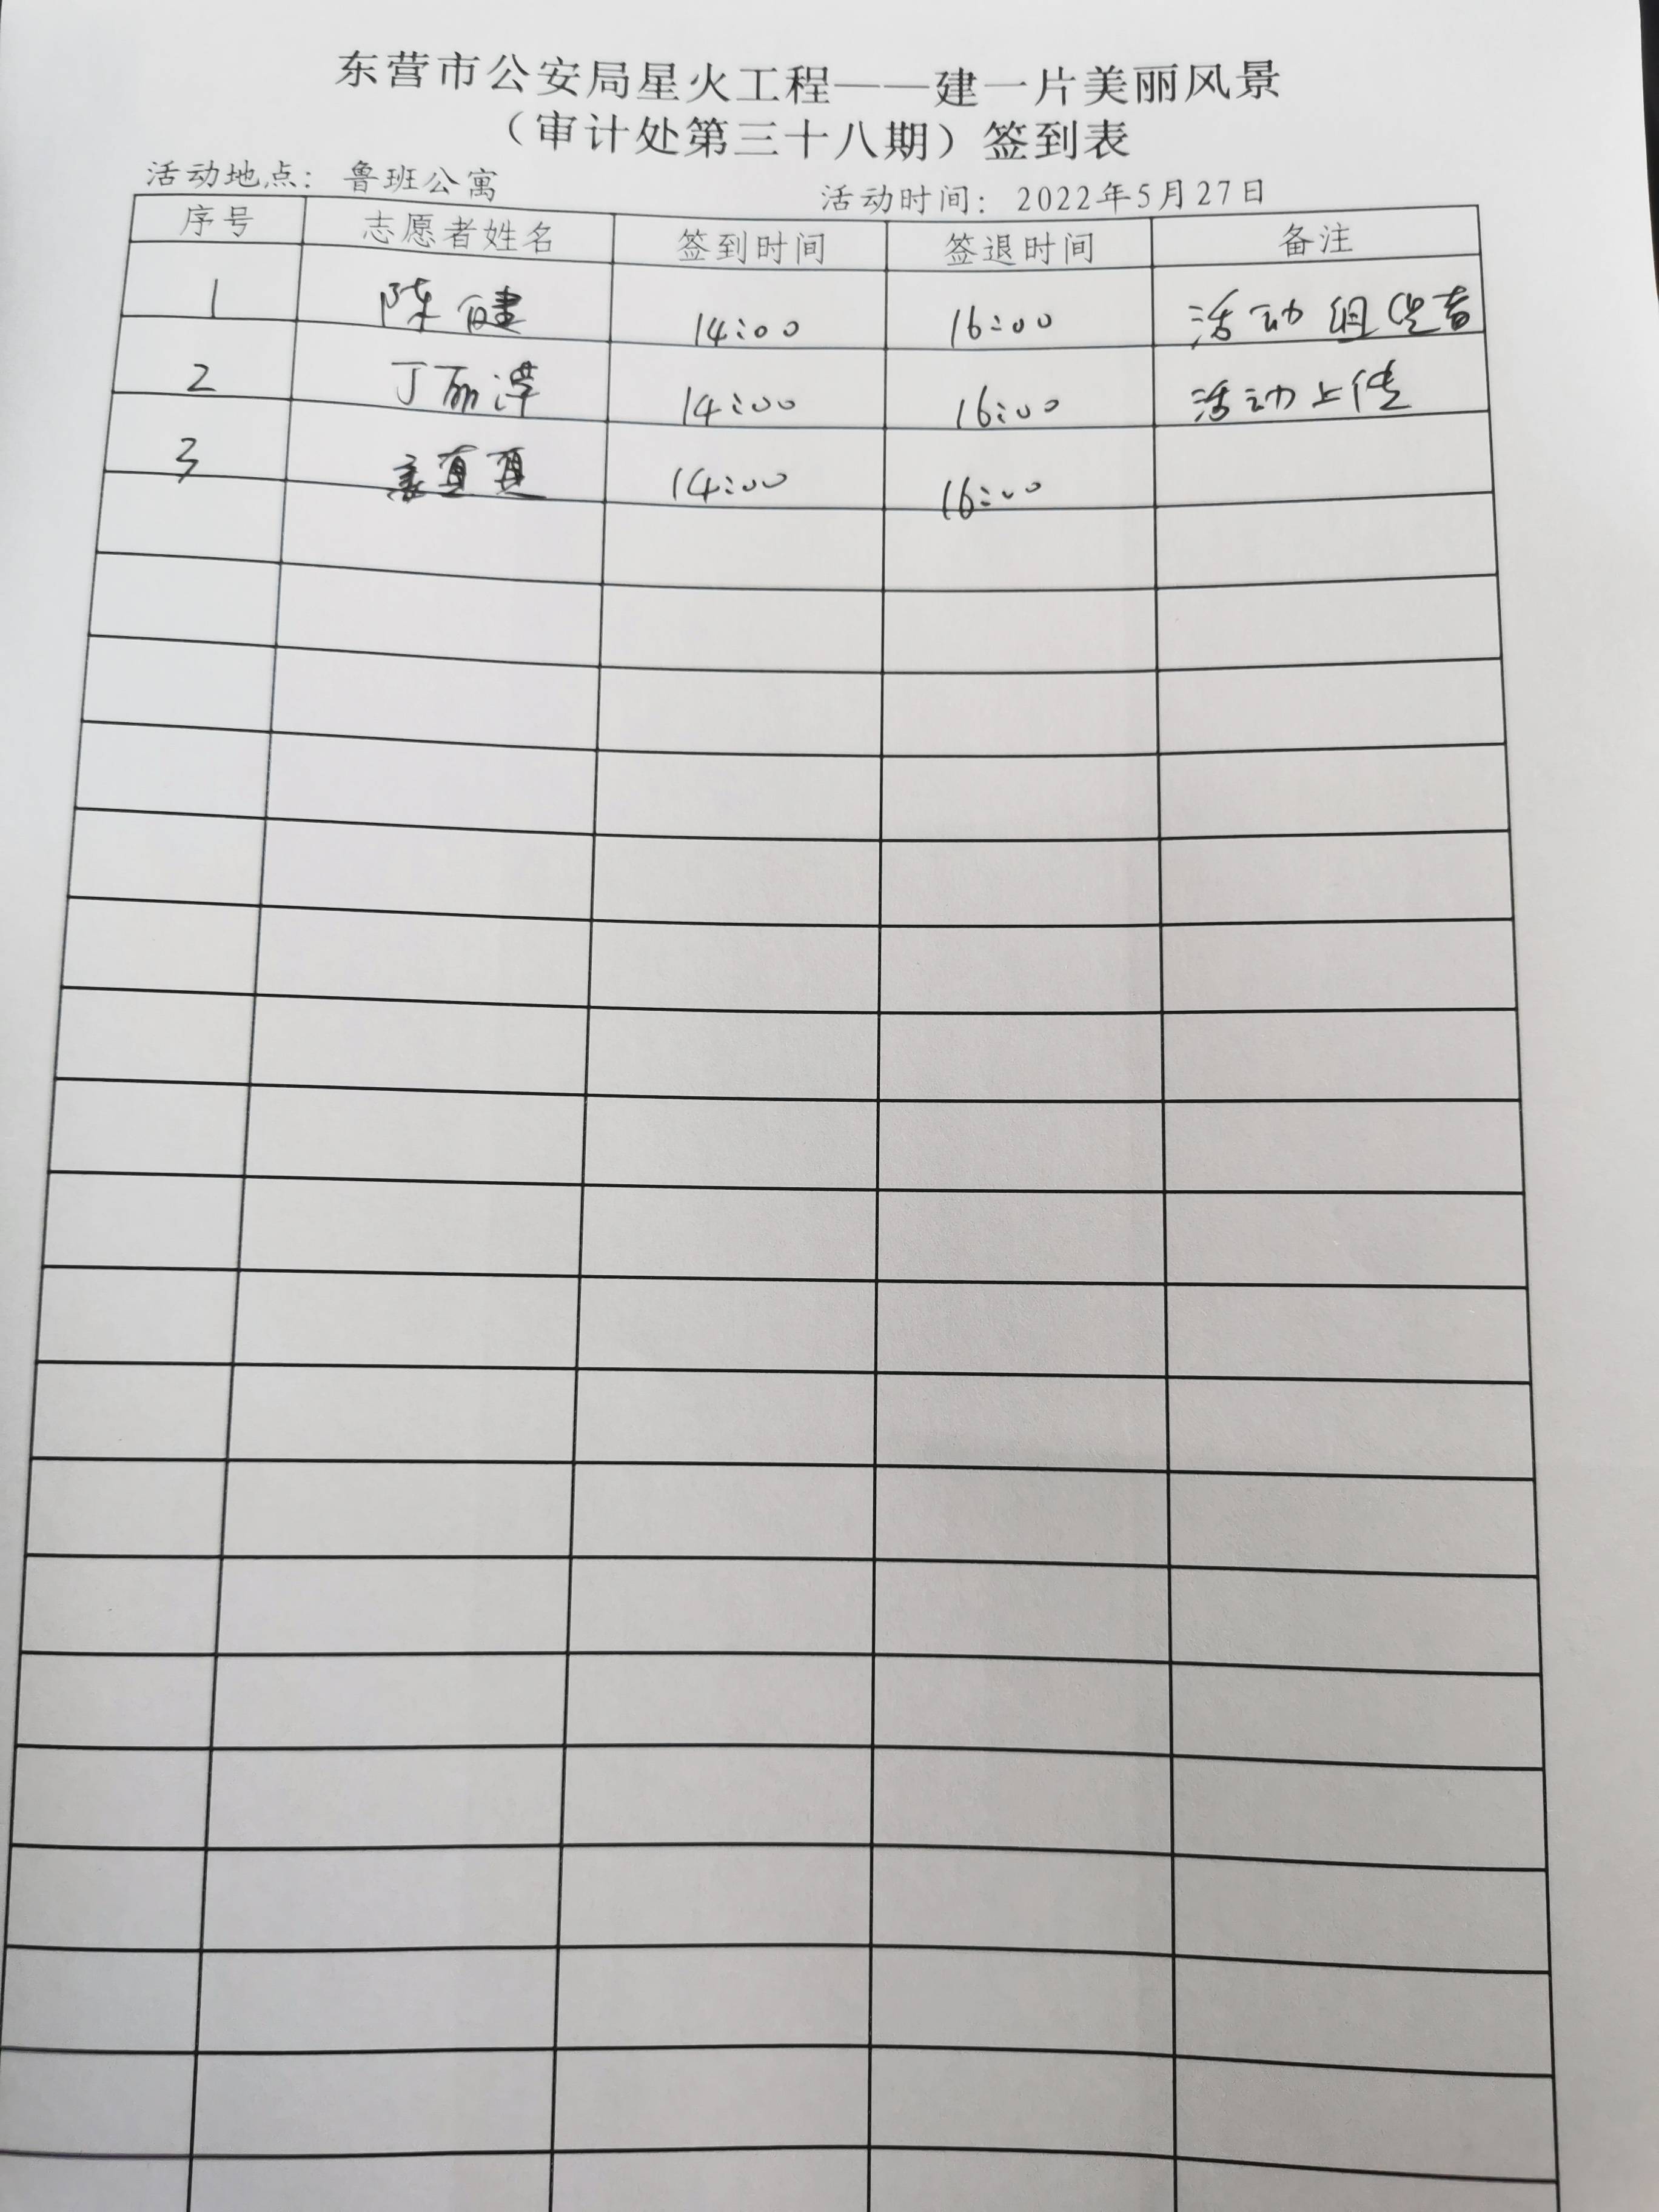 东营市公安局星火工程——建一片美丽风景
（审计处第三十八期）签到表
活动地点：鲁班公寓 活动时间：2022年5月27日
序号 志愿者姓名 签到时间 签退时间 备注
1 陈健 14:00 16:00 活动组织者
2 丁丽萍 14:00 16:00 活动上传
3 14:00 16:00